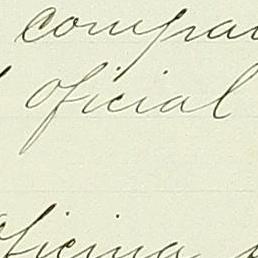 compa
oficial
oficina